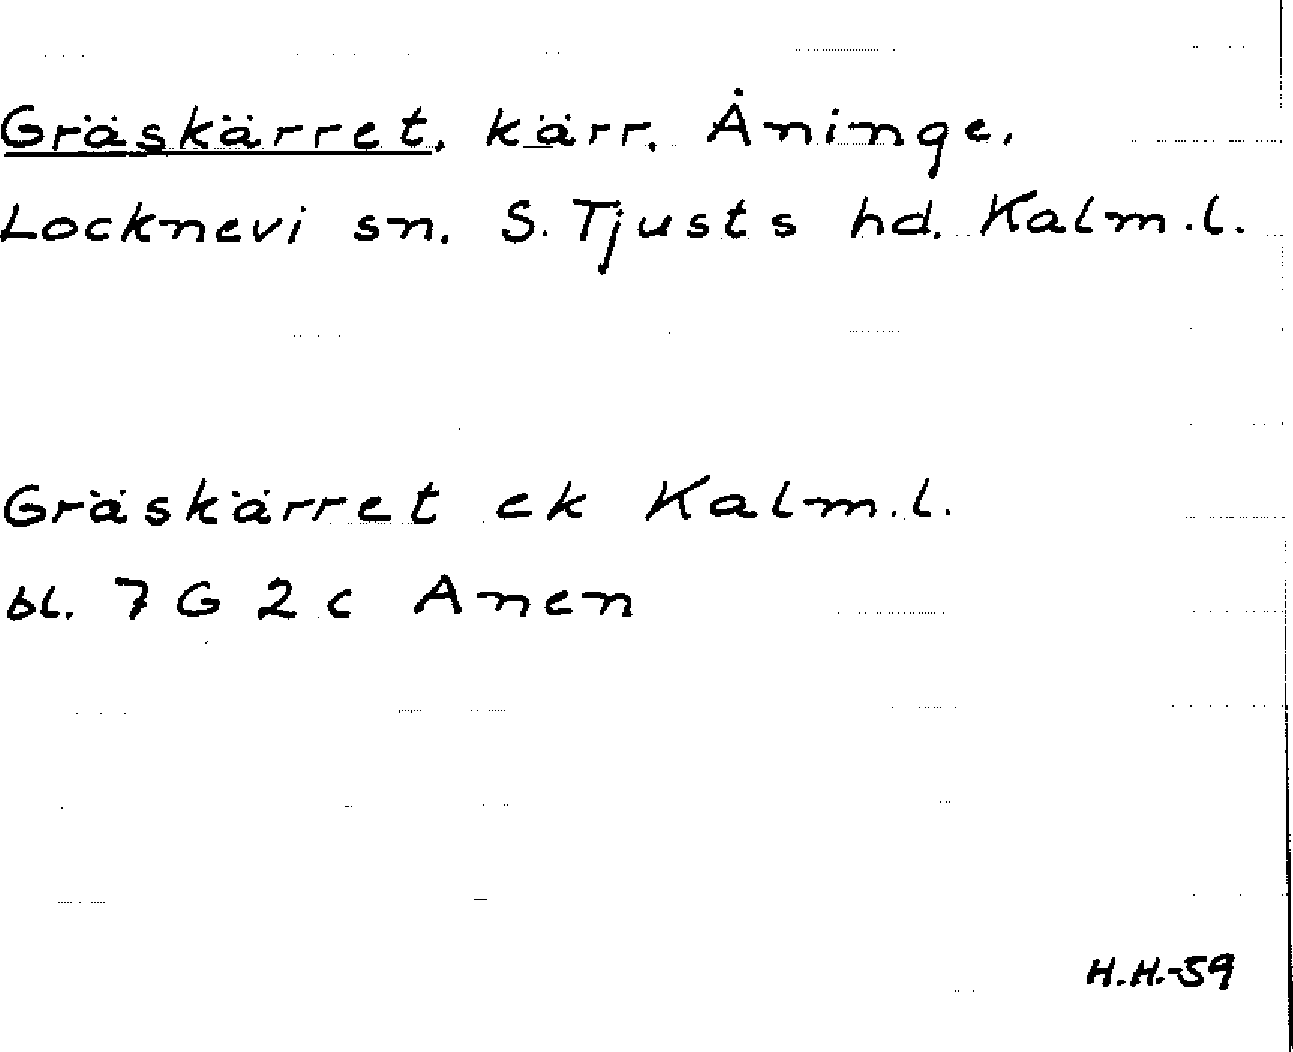 Gräskärret, kärr, Åninge,
Locknevi sn. S. Tjusts hd. Kalm.l.
Gräskärret ek Kalm.l.
bl. 7 G 2 c Anen
H.H.-59